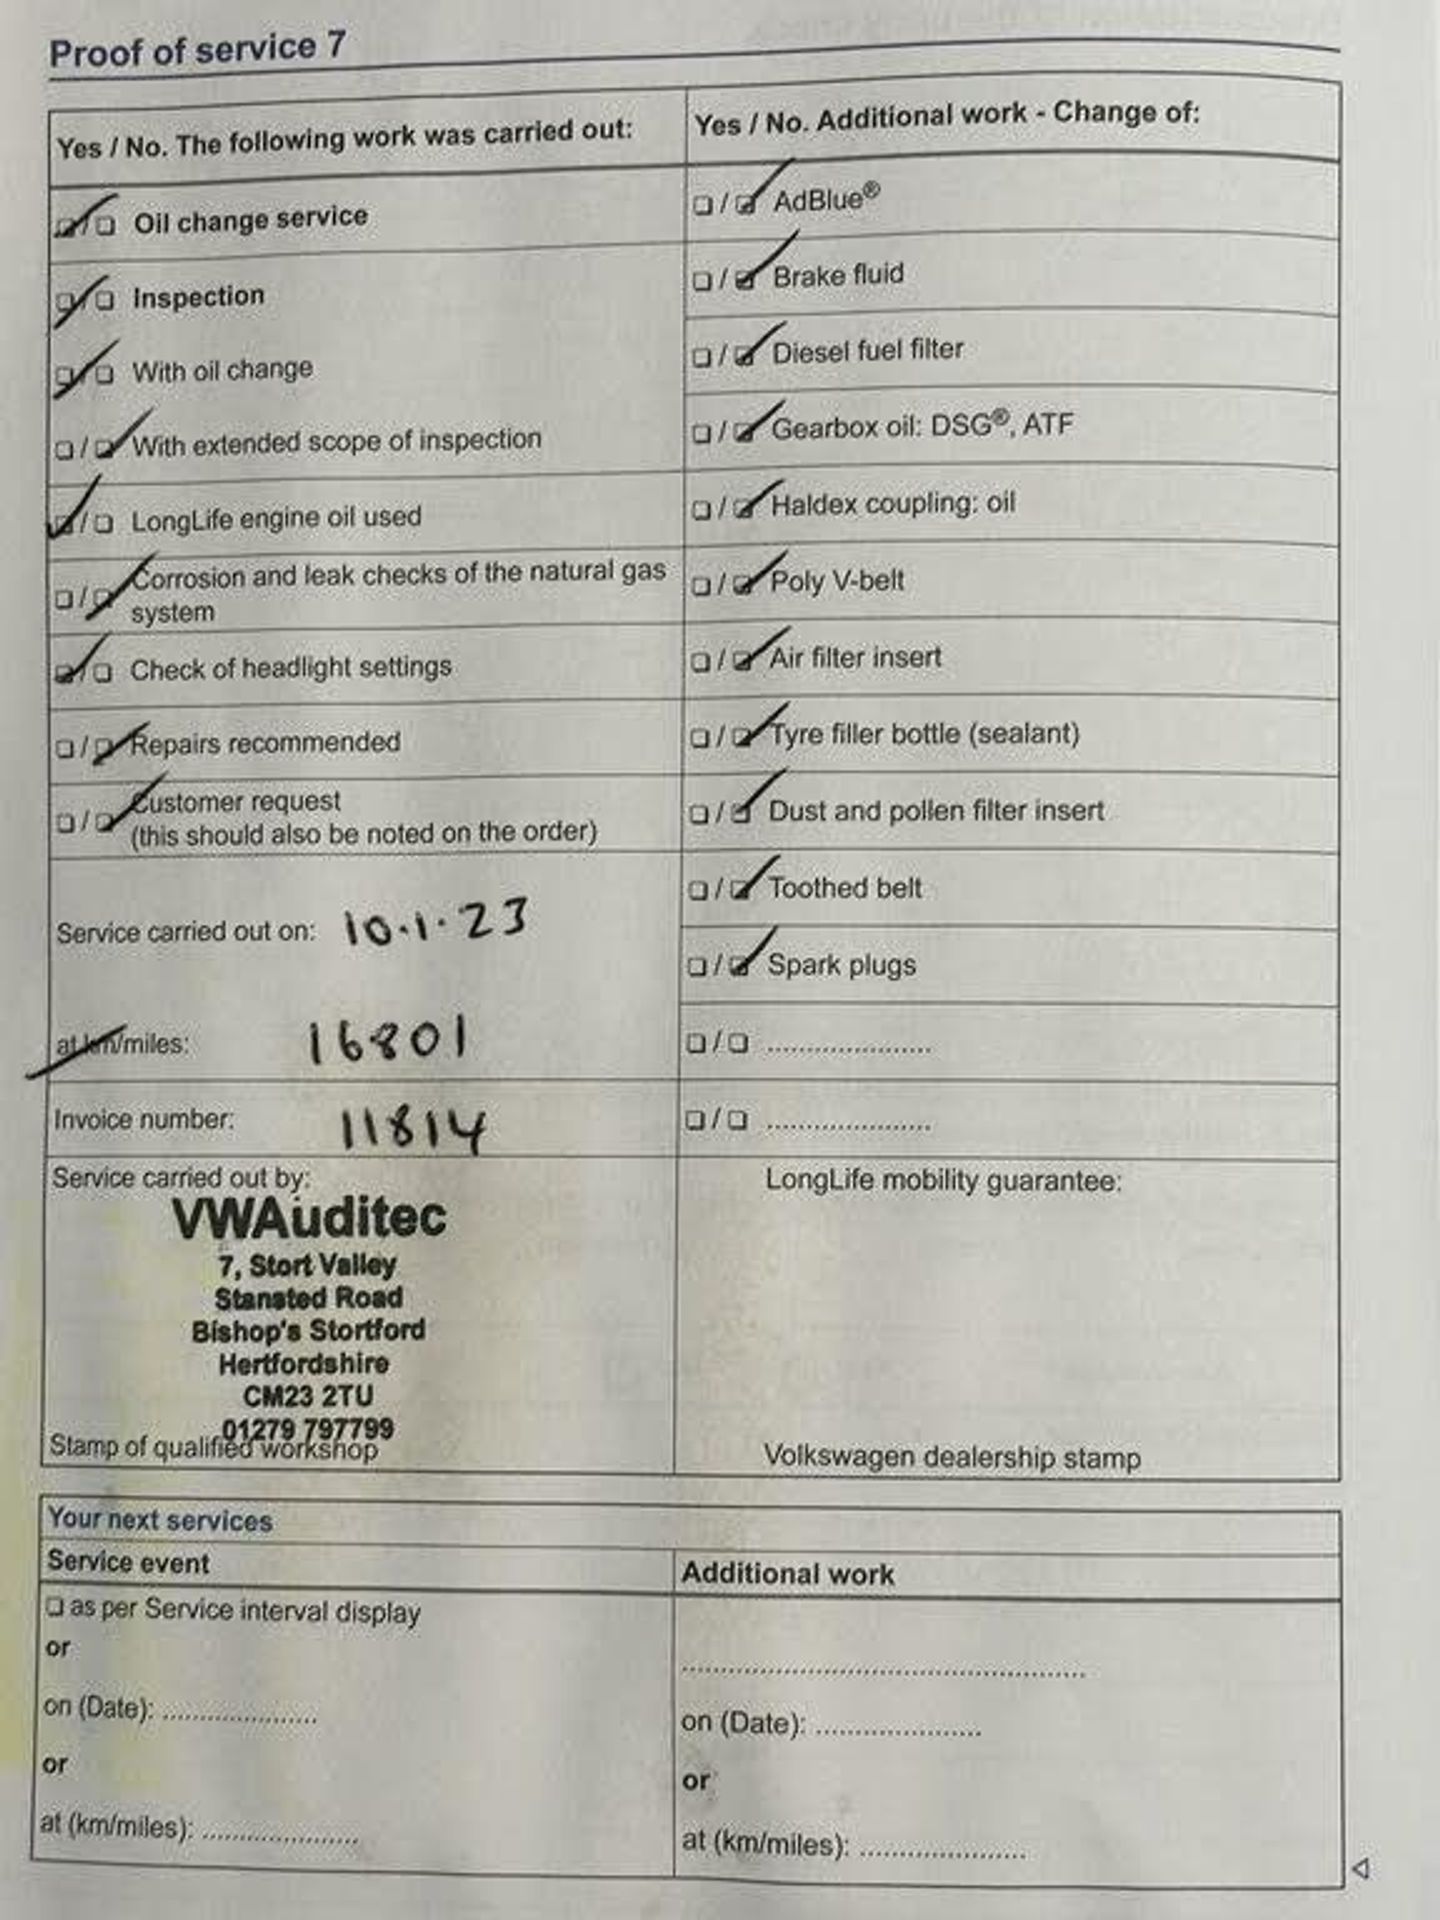 Proof of service 7
Yes / No. The following work was carried out:
☑/☐ Oil change service
☑/☐ Inspection
☑/☐ With oil change
☐/☑ With extended scope of inspection
☑/☐ LongLife engine oil used
☐/☑ Corrosion and leak checks of the natural gas
system
☑/☐ Check of headlight settings
☐/☑ Repairs recommended
☐/☑ Customer request
(this should also be noted on the order)
Service carried out on: 10.1.23
at km/miles: 16801
Invoice number: 11814
Service carried out by:
VWAuditec
7, Stort Valley
Stansted Road
Bishop's Stortford
Hertfordshire
CM23 2TU
01279 797799
Stamp of qualified workshop
Yes / No. Additional work - Change of:
☐/☑ AdBlue®
☐/☑ Brake fluid
☐/☑ Diesel fuel filter
☐/☑ Gearbox oil: DSG®, ATF
☐/☑ Haldex coupling: oil
☐/☑ Poly V-belt
☐/☑ Air filter insert
☐/☑ Tyre filler bottle (sealant)
☐/☑ Dust and pollen filter insert
☐/☑ Toothed belt
☐/☑ Spark plugs
☐/☐ ......................
☐/☐ ......................
LongLife mobility guarantee:
Volkswagen dealership stamp
Your next services
Service event
☐ as per Service interval display
or
on (Date): .....................
or
at (km/miles): .....................
Additional work
.....................................................
on (Date): ......................
or
at (km/miles): ......................